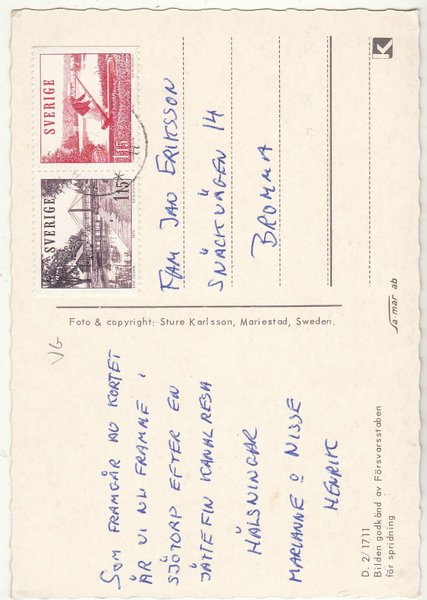 SOM FRAMGÅR AV KORTET
ÄR VI NU FRAMME I
SJÖTORP EFTER EN
JÄTTEFIN KANALRESA
HÄLSNINGAR
MARIANNE O NISSE
HENRIK
D. 2/1711
Bilden godkänd av Försvarsstaben
för spridning
Foto & copyright: Sture Karlsson, Mariestad, Sweden.
SVERIGE
115
SVERIGE
115
FAM JAN ERIKSSON
SNÄCKVÄGEN 14
BROMMA
K
sa mär ab
VG